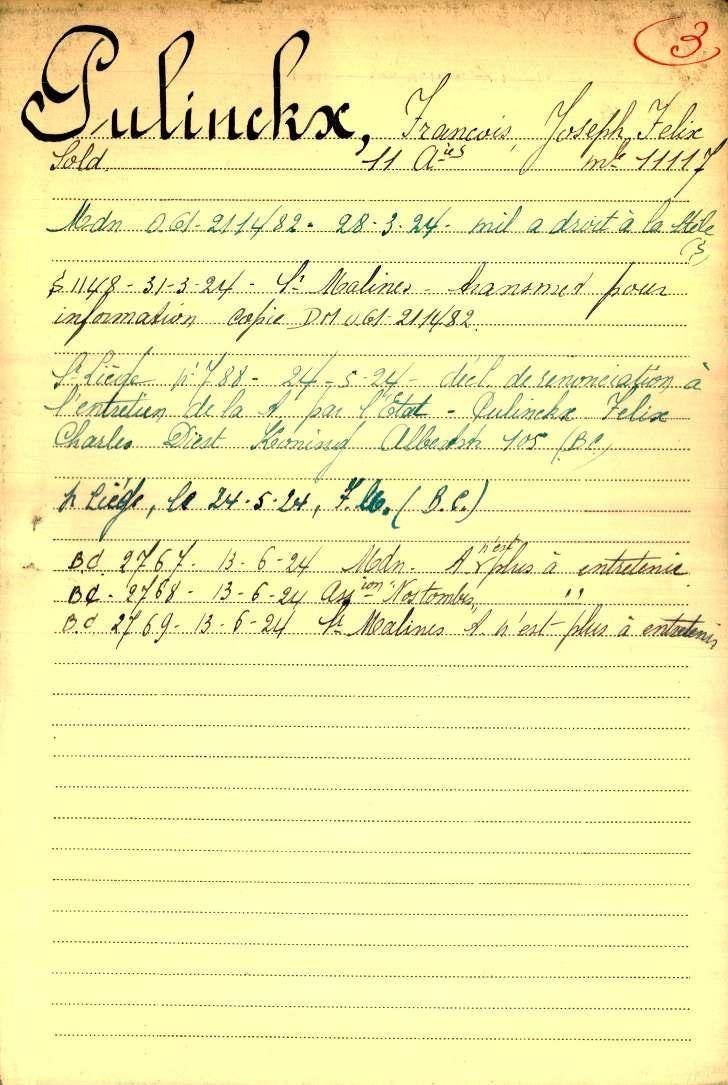 3
Pulinckx, Francois, Joseph, Felix
Sold. 11 Aies mle 11117
Mdn 061-2114/82 - 28-3-24 - mil a droit à la Stèle
(3)
S 1148 - 31-3-24 - Sr Malines - transmet pour
information copie DM 061-2114/82.
Sr Liège n° 788 - 24-5-24 - décl. de renonciation à
l'entretien de la A par l'Etat - Pulinckx Felix
Charles Diest Koning Albertstr 105 (BC)
Liège, le 24-5-24, (B.C.)
Bd 2767 - 13-6-24 Mdn. A n'est plus à entretenir
Bd - 2768 - 13-6-24 Assion "Nos tombes" "
Bd 2769 - 13-6-24 Sr Malines A n'est plus à entretenir